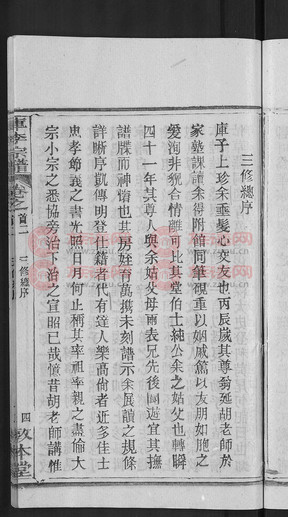 三修總序
庫子上珍余垂髮心交友也丙辰歲其尊翁延胡老師於
家塾課讀余得附館同筆硯重以姻戚篤以友朋如胞之
愛洵非貌合情離可比其堂伯士純公余之姑父也轉瞬
四十一年其尊人與余姑父母兩表兄先後圖遊宜其撫
譜牒而神愴也其房姪育萬攜未刻譜示余展讀之規條
詳晰序凱傳明登仕籍者代有達人樂高尚者近多佳士
忠孝節義之書光照日月何止柄其率祖率親之盡倫大
宗小宗之悉協旁治下治之宣昭已哉憶昔胡老師講帷
庫李宗譜
卷之首二
三修總序
四
敦本堂